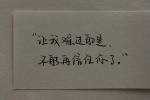 “让我难过的是，
不能再信任你了。”